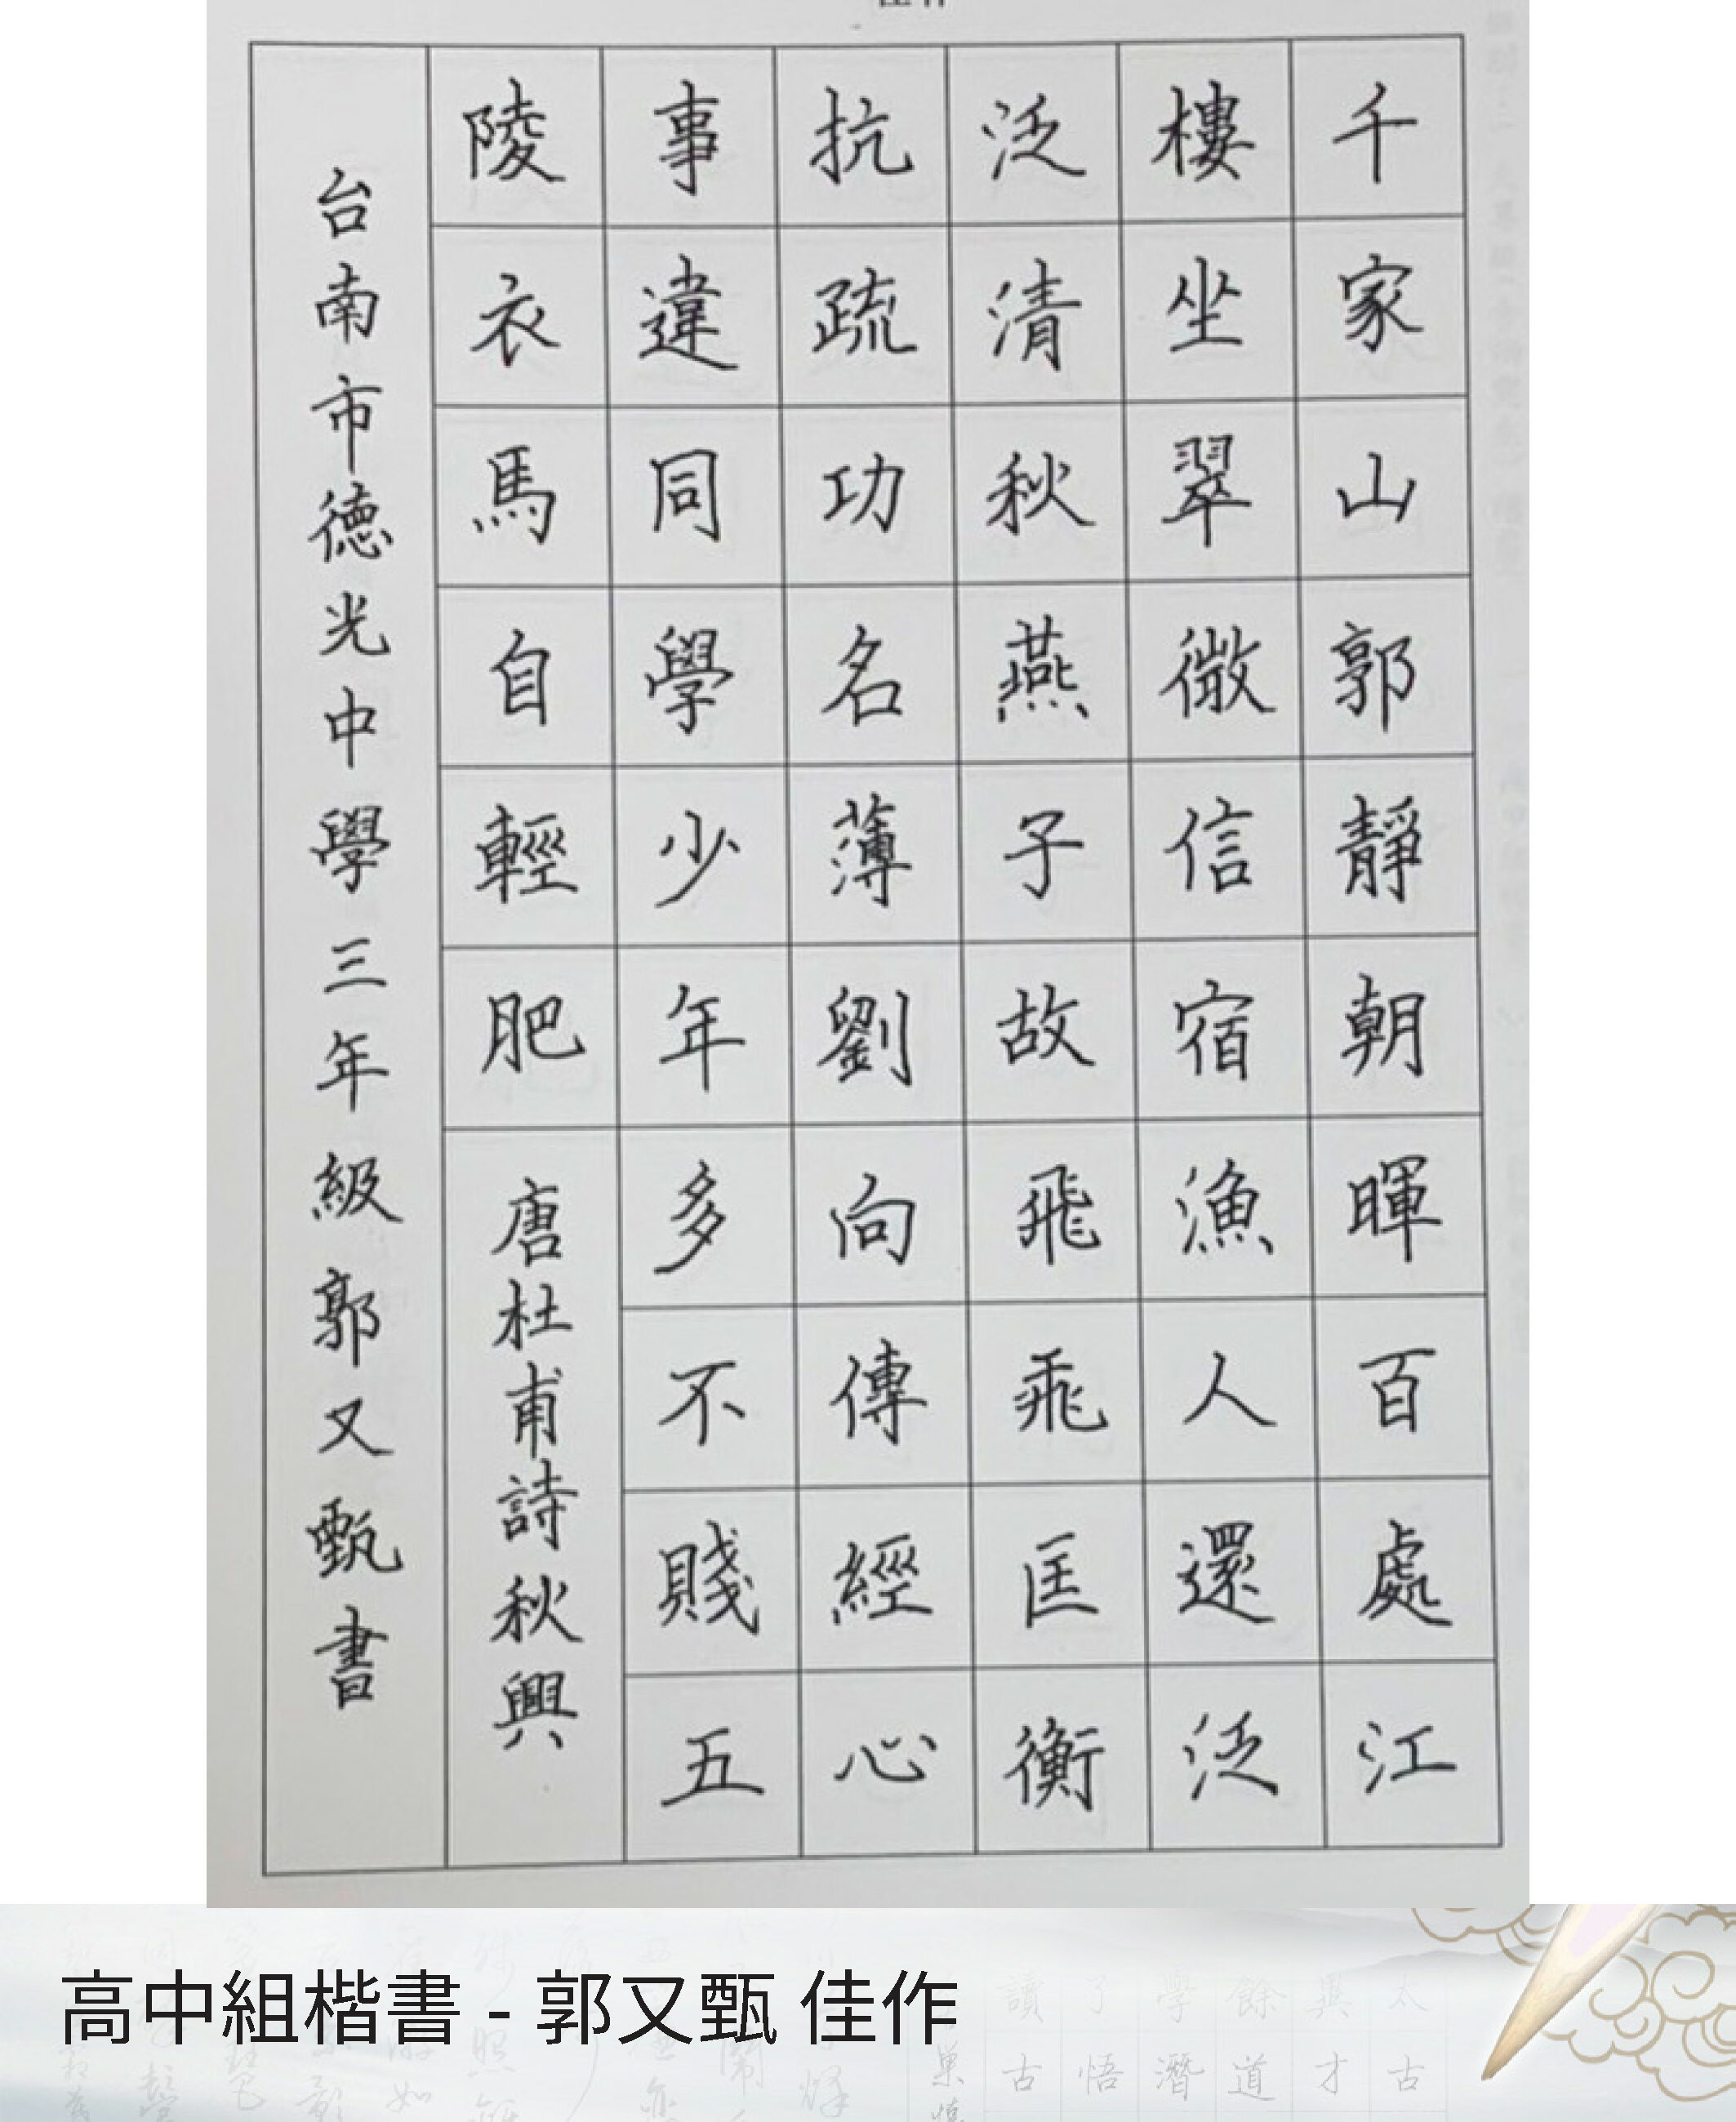 千家山郭靜朝暉百處江
樓坐翠微信宿漁人還泛
泛清秋燕子故飛飛匡衡
抗疏功名薄劉向傳經心
事違同學少年多不賤五
陵衣馬自輕肥 唐杜甫詩秋興
台南市德光中學三年級郭又甄書
高中組楷書 - 郭又甄 佳作